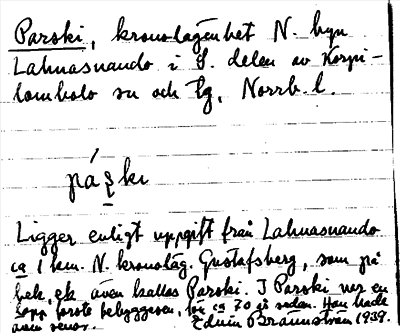 Parski, kronolägenhet N. byn
Lahnasuando i S. delen av Korpi-
lombolo sn och tg, Norrb. l.
pá ki
Ligger enligt uppgift från Lahnasuando
ca 1 km. N. kronoläg. Gustafsberg, som på
ek. även kallas Parski. I Parski var en
Lapp första bebyggaren, för ca 70 år sedan. Han hade
Edvin Brännström 1939.